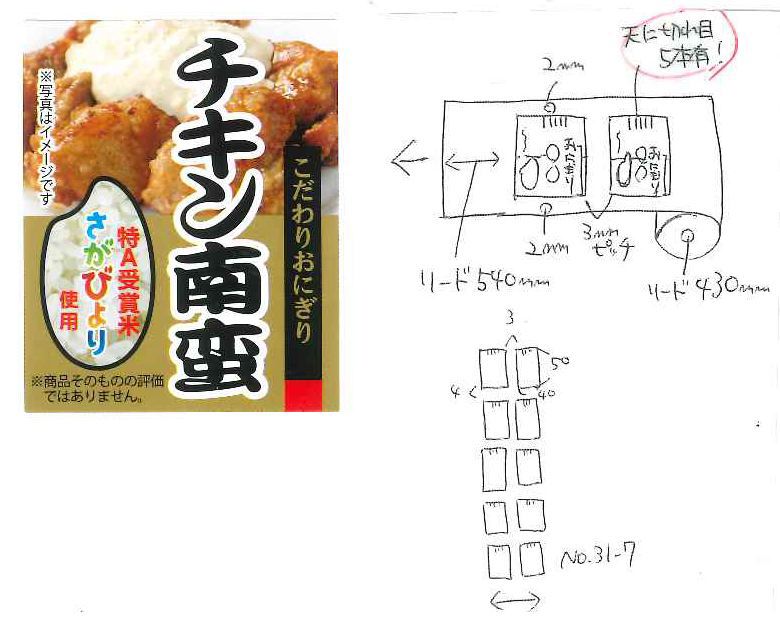 チキン南蛮
こだわりおにぎり
※写真はイメージです
特A受賞米
さがびより
使用
※商品そのものの評価
ではありません。
天に切れ目
5本有!
2mm
おにぎり
おにぎり
2mm
3mm
ピッチ
リード540mm
リード430mm
3
50
4
40
No.31-7